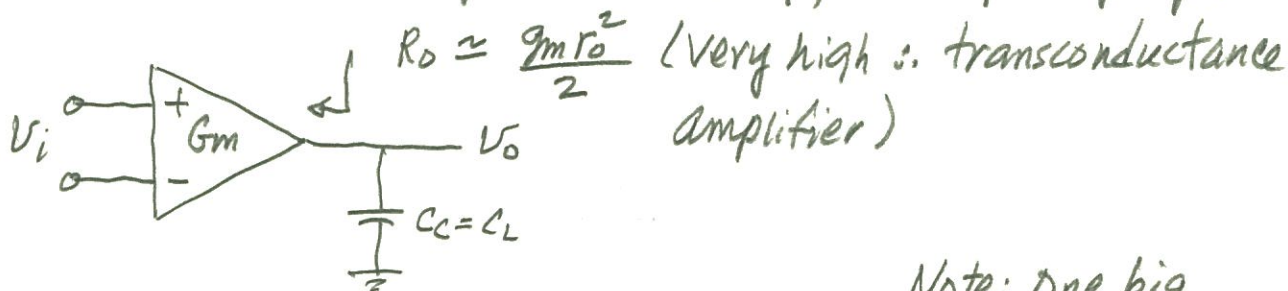 Ro ≃ gmro²/2 (very high ∴ transconductance
amplifier)
Vi + Gm − Vo
Cc = CL
Note: One big